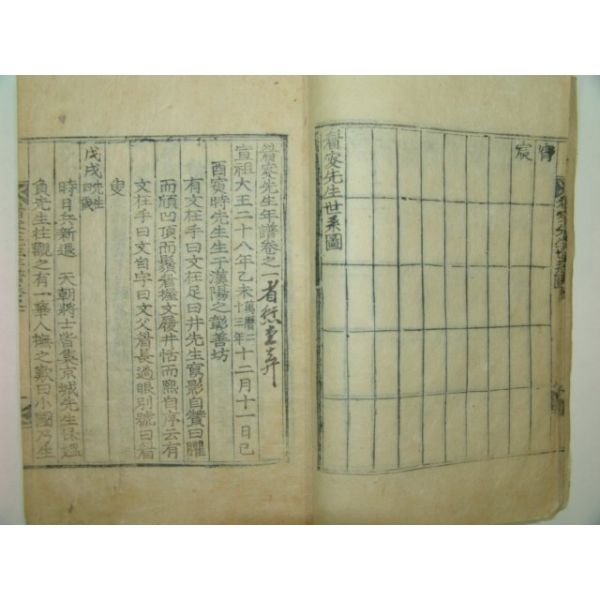 睂叜先生世系圖
睂叜先生年譜卷之一
宣祖大王二十八年乙未萬曆二十三年十二月十一日己
酉寅時先生生于漢陽之彰善坊
有文在手曰文在足曰井先生寫影自贊曰臞
而頎凹頂而鬚眉握文履井恬而熙自序云有
文在手曰文自字曰文父睂長過眼別號曰睂
叜
戊戌先生四歲
時日兵新退 天朝將士皆集京城先生保媼
負先生往觀之有一華人撫之歎曰小國乃生